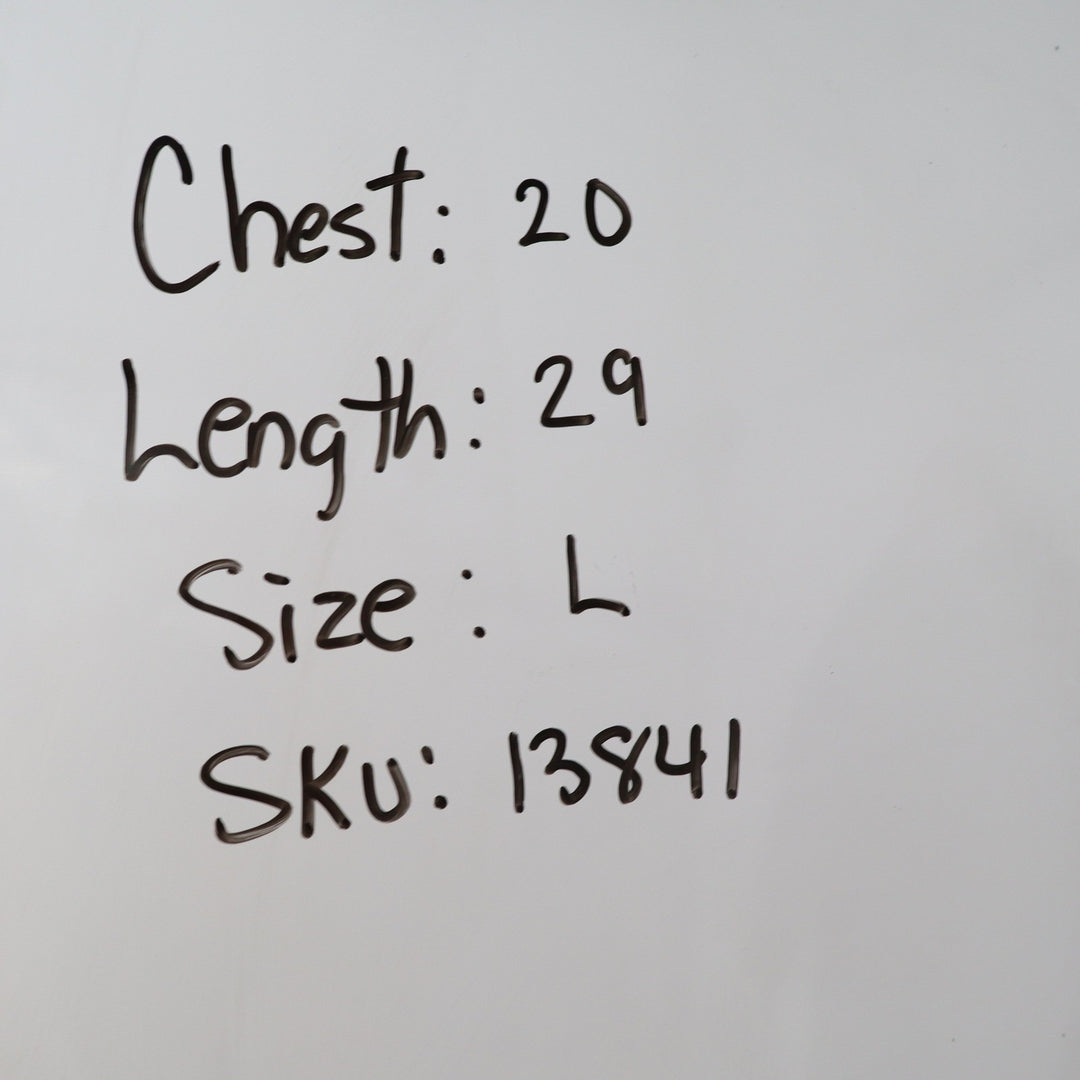 Chest: 20
Length: 29
Size: L
SKU: 13841